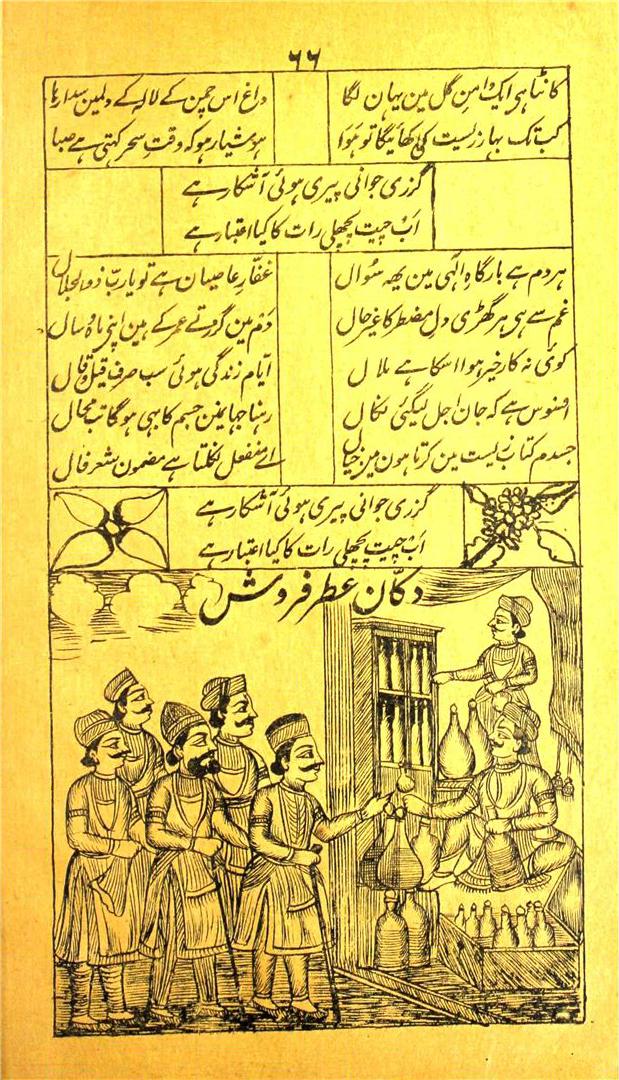 ۶۶
کانٹا ہی ایک دامن گل مین یہان لگا داغ اس چمن کے لالہ کے دلمین سدا رہا
کب تک بہار زیست کی کھائیگا تو ہَوَا ہوشیار ہو کہ وقت سحر کہتی ہے صبا
گزری جوانی پیری ہوئی آشکار ہے
اَبْ چیت پچھلی رات کا کیا اعتبار ہے
ہر دم ہے بارگاہ الٰہی مین یہہ سُوال غفّار عاصیان ہے تو یا ربّ ذوالجلال
غم سے ہی ہر گھڑی دل مضطر کا غیر حال دَم مین گزرتے عمر کے ہین اپنی ماہ و سال
کوئی نہ کار خیر ہوا اسکا ہے ملال ایّام زندگی ہوئی سب صرف قیل و قال
افسوس ہے کہ جان اجل لیگئی نکال رہنا جہا نمین جسم کا بہی ہوگا تب محال
جسدم کتاب زیست مین کرتا ہون مین خیال اے منفعل نکلتا ہے مضمون شعر فال
گزری جوانی پیری ہوئی آشکار ہے
اَبْ چیت پچھلی رات کا کیا اعتبار ہے
دکّان عطر فروش